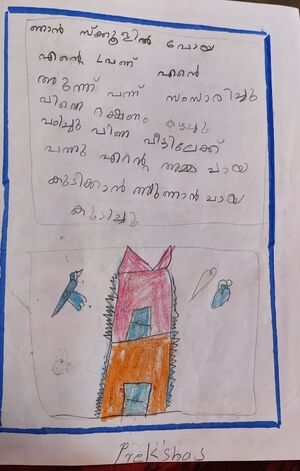 ഞാൻ സ്ക്കൂളിൽ പോയ
എന്റെ എന്നെ
വന്ന് സംസാരിച്ചു
പിന്നെ ഭക്ഷണം കഴച്ചു
പഠിച്ചു പിന്ന വീട്ടിലേക്ക്
വന്നു എന്റ അമ്മ ചായ
കുടിക്കാൻ ഞാൻ ചായ
കുടിച്ചു
Prekshas